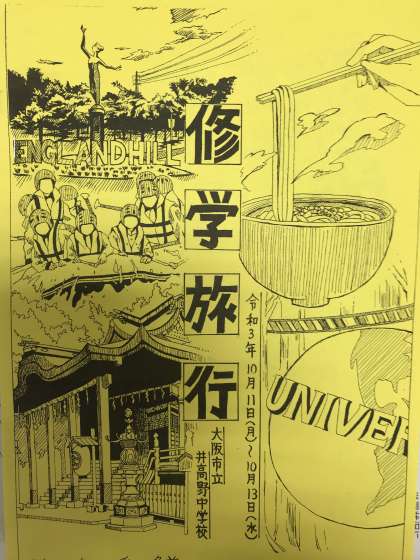 ENGLANDHILL
修学旅行
令和3年10月11日(月)～10月13日(水)
大阪市立
井高野中学校
UNIVER